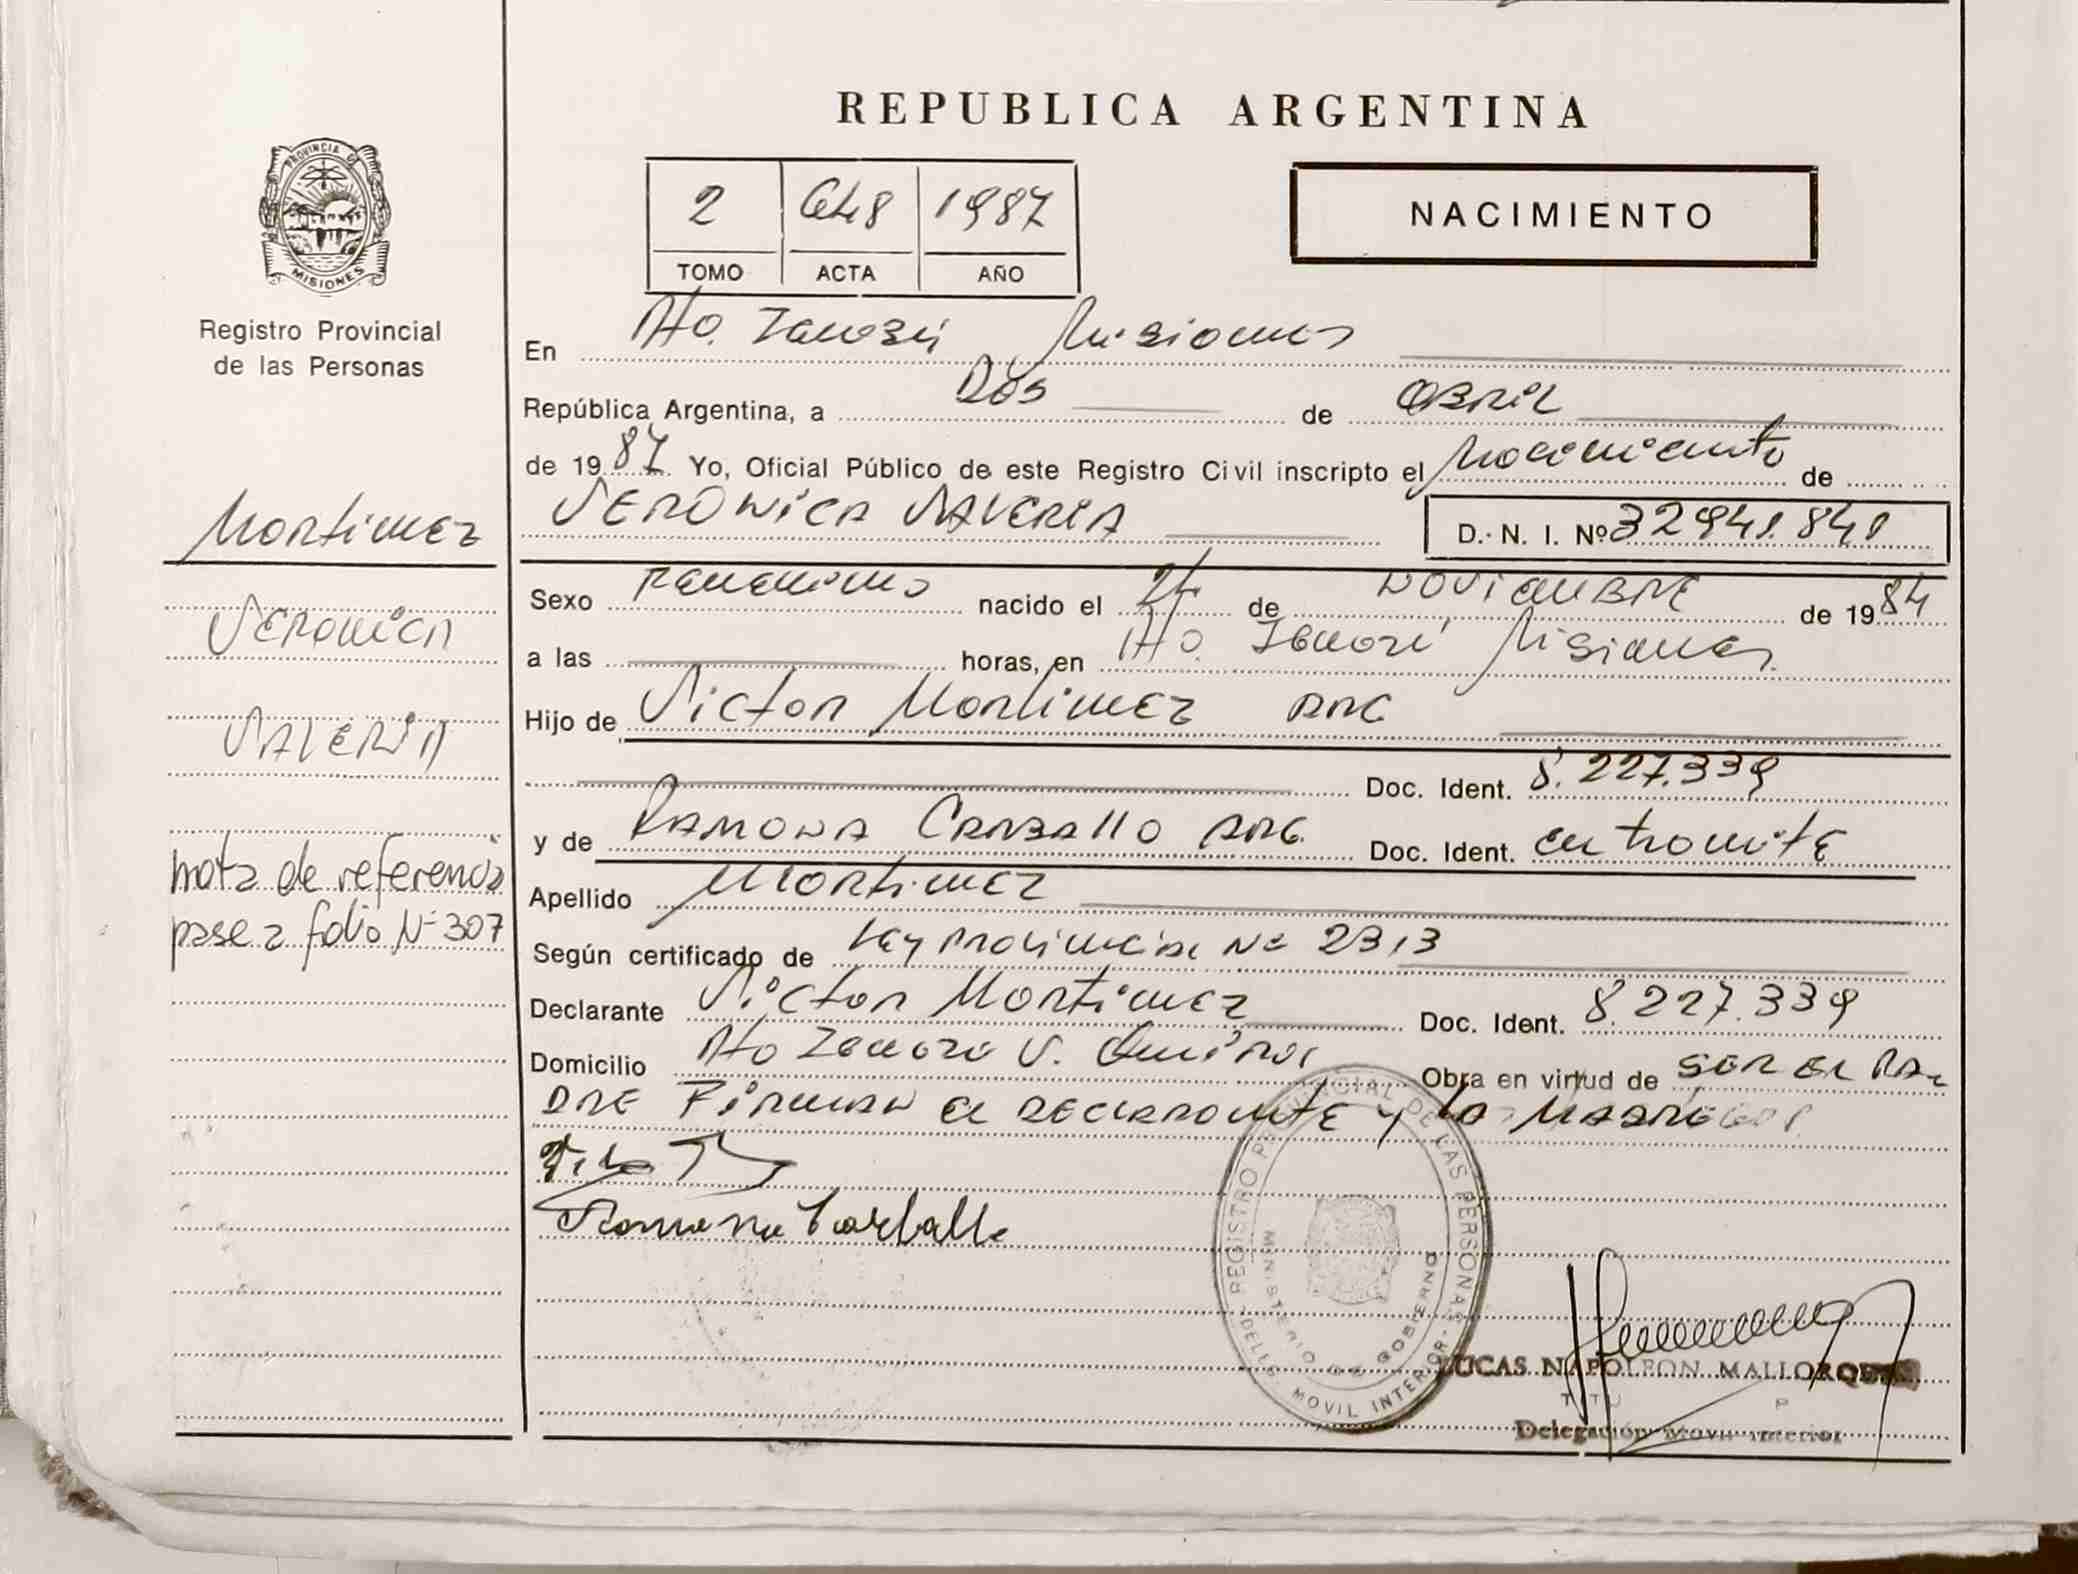 REPUBLICA ARGENTINA
PROVINCIA DE
MISIONES
Registro Provincial
de las Personas
2 648 1987
TOMO ACTA AÑO
NACIMIENTO
En Misiones
República Argentina, a Dos de Abril
de 1987 Yo, Oficial Público de este Registro Civil inscripto el Nacimiento de
VERONICA VALERIA D. N. I. Nº 32941.841
Sexo Femenino nacido el 24 de NOVIEMBRE de 1984
a las horas, en Misiones
Hijo de Victor Martinez ARG
Doc. Ident. 8.227.339
y de RAMONA CARBALLO ARG. Doc. Ident. en tramite
Apellido Martinez
Según certificado de Ley Provincial Nº 2313
Declarante Victor Martinez Doc. Ident. 8.227.339
Domicilio Obra en virtud de SER EL PA-
DRE Firman el declarante y la MADRE
Ramona Carballo
Martinez
VERONICA
VALERIA
nota de referencia
pase a folio Nº 307
REGISTRO PROVINCIAL DE LAS PERSONAS
MINISTERIO DE GOBIERNO
MOVIL INTERIOR
LUCAS NAPOLEON
Delegación Movil Interior